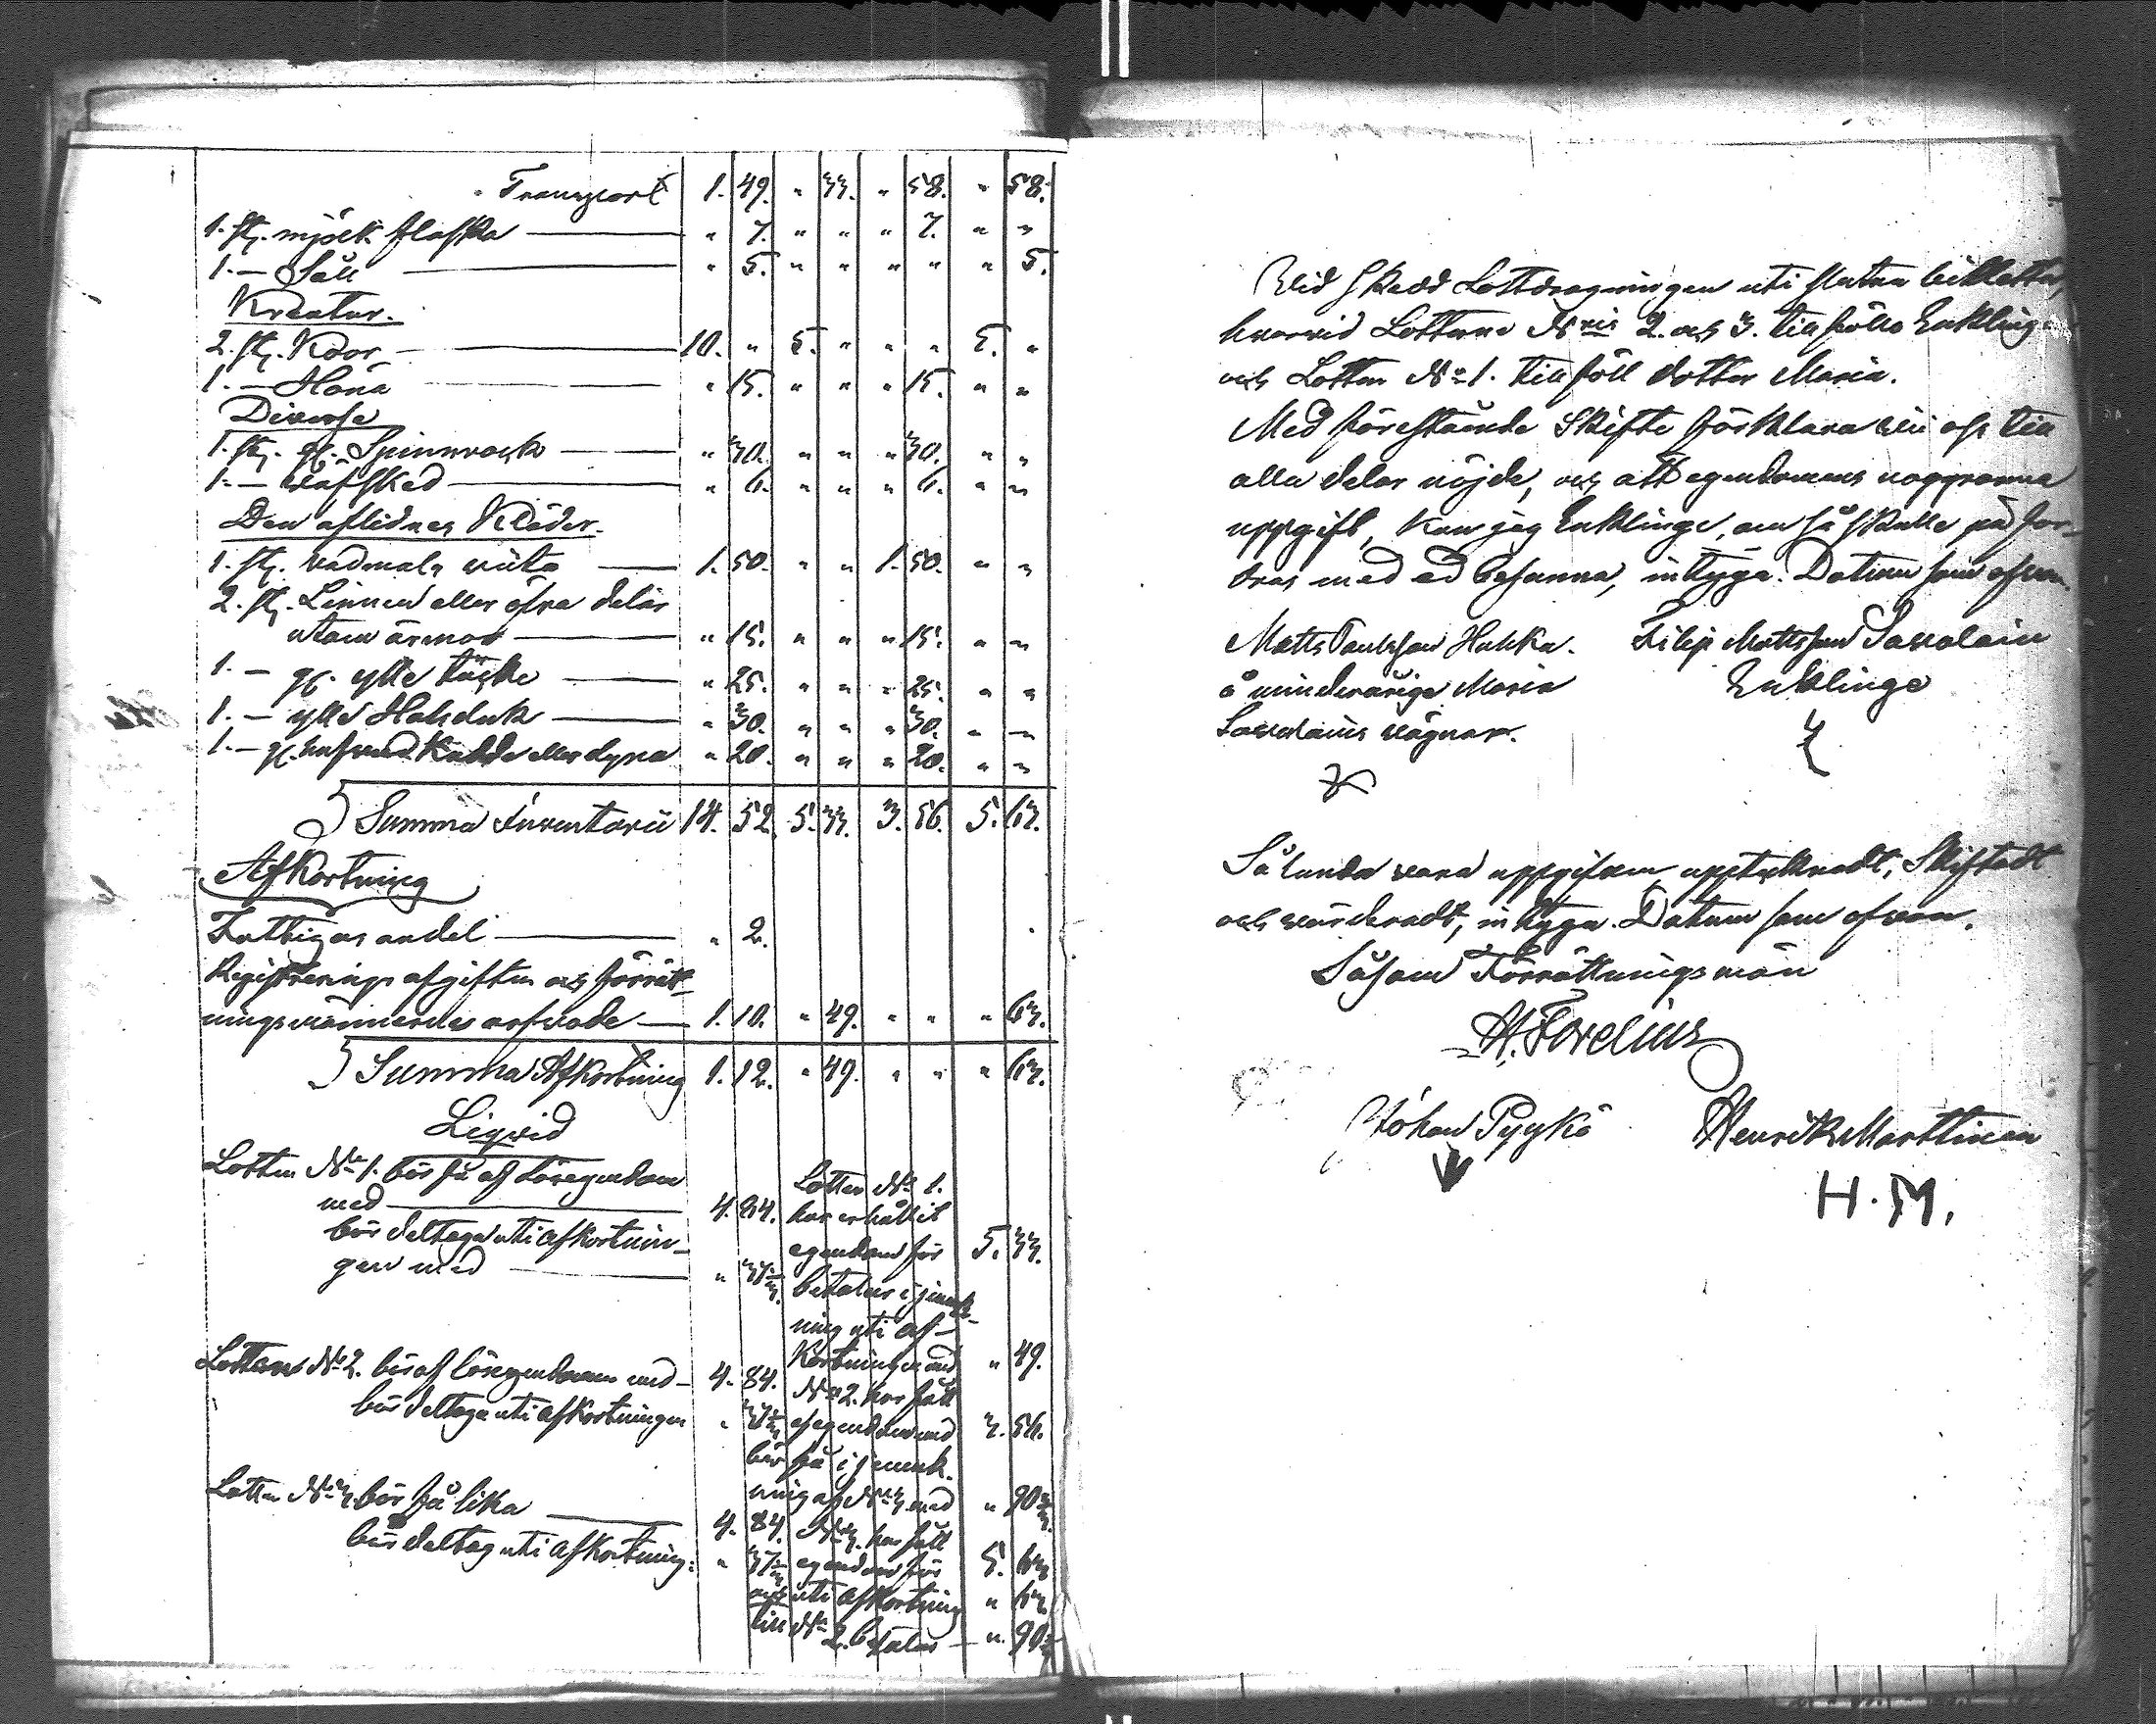 Transport 1. 49. " 33. " 58. " 58.
1. st. mjölk flaska " 7. " " " 7. " "
1. — Såll " 5. " " " " " 5.
Kreatur.
2. st. Kor 10. " 5. " " " 5. "
1. — Höna " 15. " " " 15. " "
Diverse
1. st. gl. Spinnrock " 30. " " " 30. " "
1. — väfsked " 6. " " " 6. " "
Den aflidnes Kläder.
1. st. vadmals 1. 50. " " 1. 50. " "
2. st. Linnen eller öfra delar
utan ärmar " 15. " " " 15. " "
1. — gl. ylle täcke " 25. " " " 25. " "
1. — ylle Halsduk " 30. " " " 30. " "
1. — gl. eller dyna " 20. " " " 20. " "
Summa Inventarii 14. 52. 5. 33. 3. 56. 5. 63.
Afkortning
Fattigas andel " 2.
Registrerings afgiften och förrätt-
ningsmännernes arfvode 1. 10. " 49. " " " 63.
Summa Afkortning 1. 12. " 49. " " " 63.
Liqvid
Lotten No 1. bör få af lösegendom
med 4. 84.
bör deltaga uti afkortnin-
gen med " 37 1/3.
Lotten No 1.
har erhållit
egendom för 5. 33.
betalar i
ning uti af-
kortningen med " 49.
Lotten No 2. bör af lösegendomen med 4. 84.
bör deltaga uti afkortningen " 37 1/3
No 2. har fått
af egendom med 3. 56.
bör få i
ning af No 3. med " 90 2/3.
Lotten No 3. bör få lika 4. 84.
bör deltag uti afkortning: " 37 1/3
No 3. har fått
egendom för 5. 63
och uti afkortning " 63
till No 2. betalar " 90 2/3
Vid skedd Lottdragningen uti slutna
hvarvid Lotterne Nris 2. och 3. tillföllo Enkling:
och Lotten No 1. tillföll dotter Maria.
Med förestående Skifte förklara vi oss till
alla delar nöjde, och att egendomens noggranna
uppgift, kan jag Enklinge, om så skulle på for-
dras med ed besanna, intyga. Datum som ofvan.
Matts Paulsson Hukka. Filip Mattsson Savolain
å minderåriga Maria Enklinge
Savolains vägnar.
Sålunda vara uppgifven, upptecknadt, Skiftadt
och värderadt, intyga. Datum som ofvan.
Såsom Förrättningsmän
A. Forelius
Johan Pyykö Henrik Marttinen
H. M.